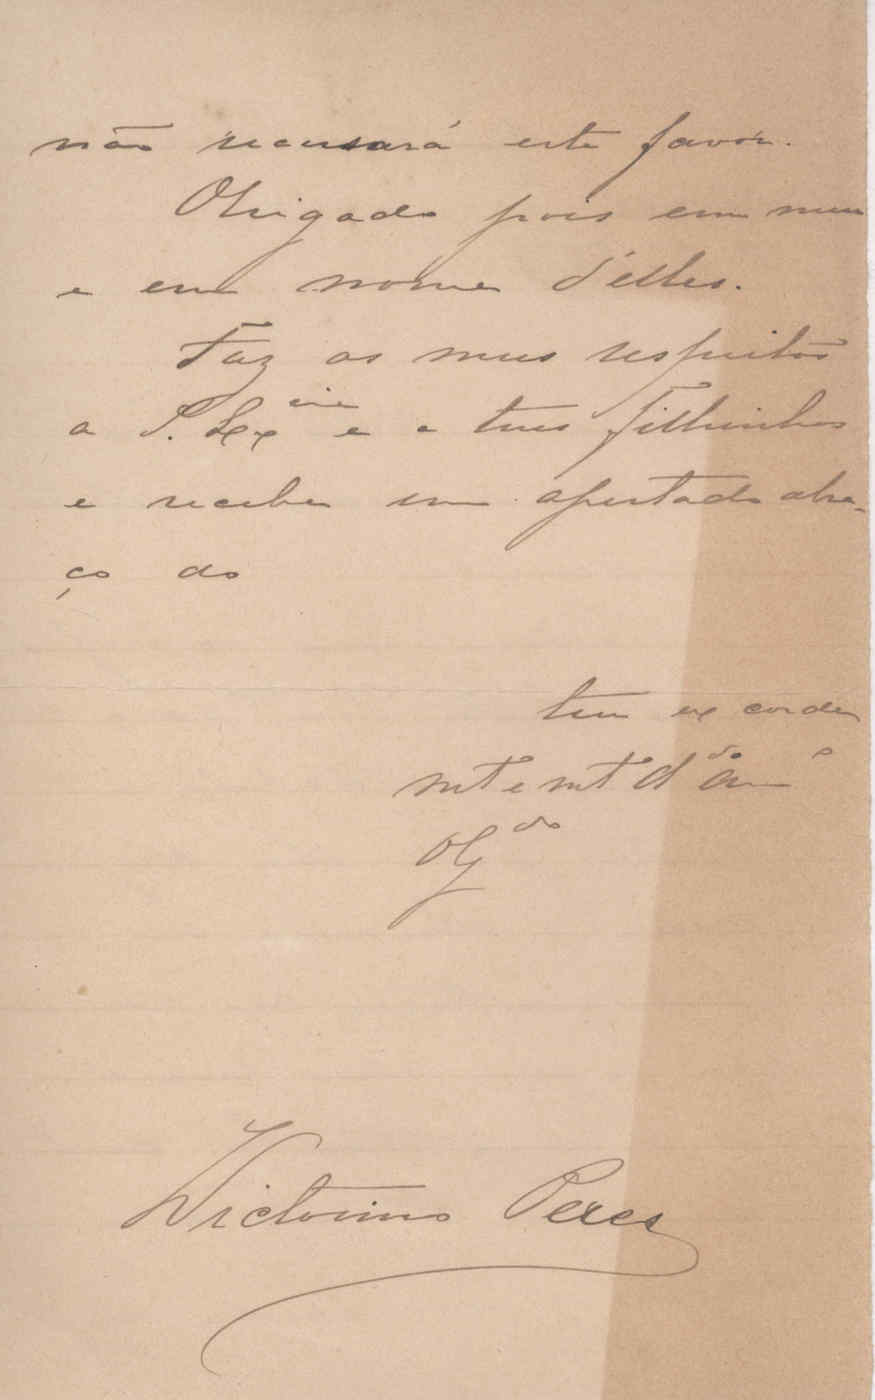 não recusará este favor.
Obrigado pois em meu
e em nome d'elles.
Faz os meus respeitos
a S. Ex.cia e a teus filhinhos
e recebe um apertado abra-
ço do
teu ex corde
mt e mt d
Obg do
Victorino Peres